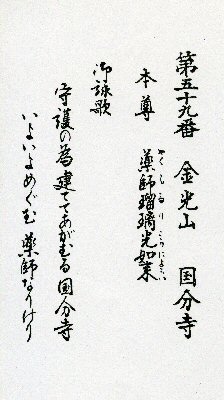 第五十九番　金光山　国分寺
本尊　薬師瑠璃光如来
やくしるりこうにょらい
御詠歌
守護の為建ててあがむる国分寺
いよいよめぐむ薬師なりけり